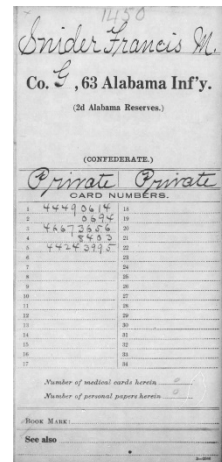 1450
Snider Francis M.
Co. G, 63 Alabama Inf'y.
(2d Alabama Reserves.)
(CONFEDERATE.)
Private Private
CARD NUMBERS.
1 44490614 18
2 0694 19
3 44673656 20
4 8403 21
5 44243995 22
6 23
7 24
8 25
9 26
10 27
11 28
12 29
13 30
14 31
15 32
16 33
17 34
Number of medical cards herein 0
Number of personal papers herein 0
BOOK MARK:
See also